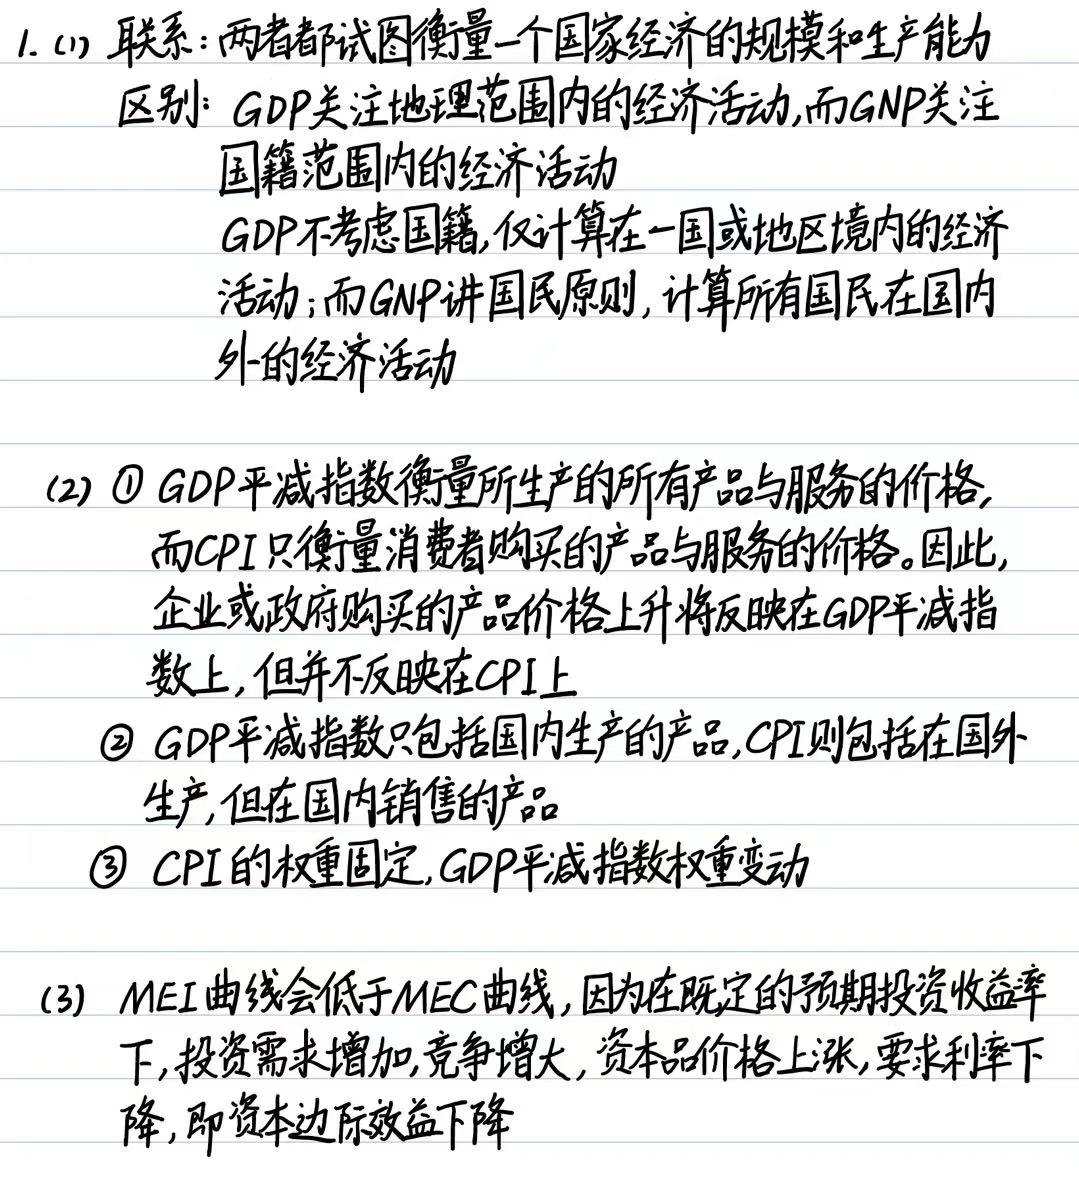 1. (1) 联系：两者都试图衡量一个国家经济的规模和生产能力
区别：GDP关注地理范围内的经济活动,而GNP关注
国籍范围内的经济活动
GDP不考虑国籍,仅计算在一国或地区境内的经济
活动；而GNP讲国民原则，计算所有国民在国内
外的经济活动
(2) ① GDP平减指数衡量所生产的所有产品与服务的价格，
而CPI只衡量消费者购买的产品与服务的价格。因此，
企业或政府购买的产品价格上升将反映在GDP平减指
数上，但并不反映在CPI上
② GDP平减指数只包括国内生产的产品,CPI则包括在国外
生产,但在国内销售的产品
③ CPI的权重固定,GDP平减指数权重变动
(3) MEI曲线会低于MEC曲线，因为在既定的预期投资收益率
下,投资需求增加,竞争增大，资本品价格上涨,要求利率下
降,即资本边际效益下降